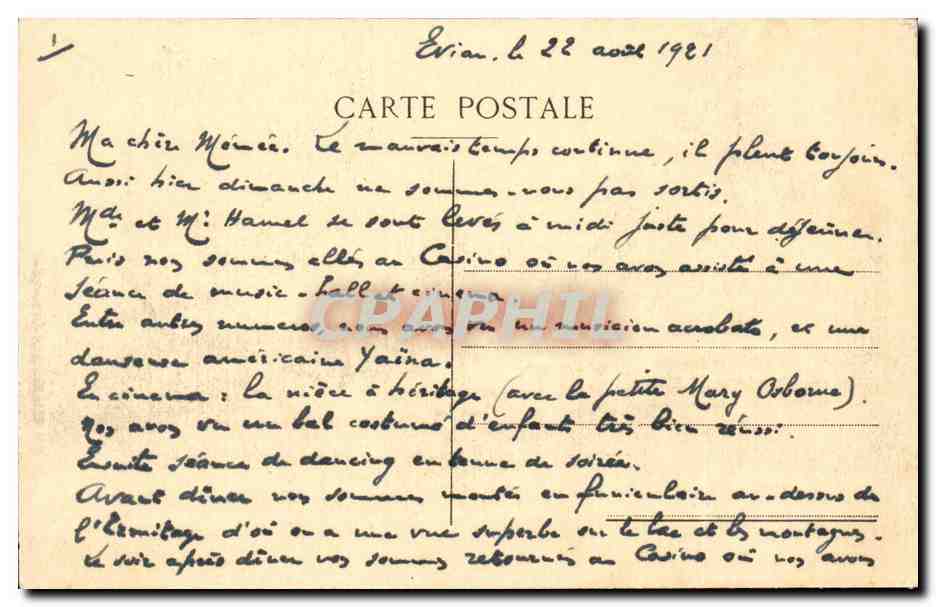 1
Evian, le 22 août 1921
CARTE POSTALE
Ma chère Mémée. Le mauvais temps continue, il pleut toujours.
Aussi hier dimanche ne sommes-nous pas sortis.
Mde et Mr Hamel se sont levés à midi juste pour déjeuner.
Puis nos sommes allés au Casino où nos avons assisté à une
séance de music-hall et cinema
CPARPHIL
Entre autres numeros, nous avons vu un musicien acrobate, et une
danseuse américaine Yaïna.
En cinema : la nièce à héritage (avec la petite Mary Osborne).
Nos avons vu un bal costumé d'enfants très bien réussi.
Ensuite séance de dancing en tenue de soirée.
Avant dîner nos sommes montés en funiculaire au-dessus de
l'Ermitage d'où on a une vue superbe sur le lac et les montagnes.
Le soir après dîner nos sommes retournés au Casino où nos avons